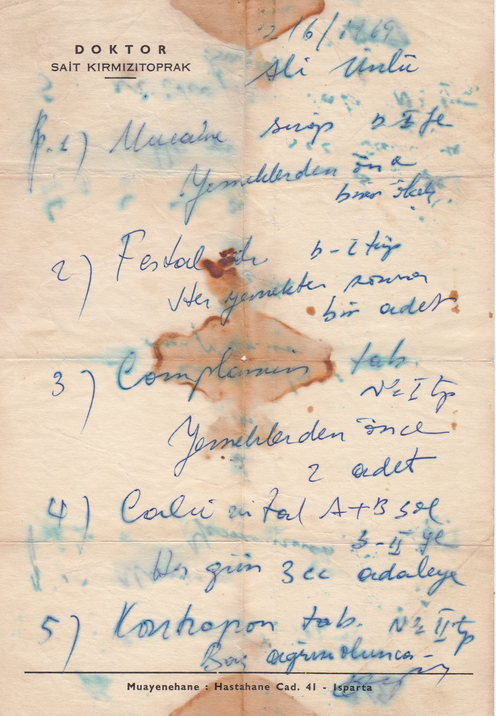 DOKTOR
SAİT KIRMIZITOPRAK
2/6/1969
Ali Ünlü
p. 1) Mucaine şurup D-I şe
Yemeklerden önce
birer ölçek
2) Festal D-I tüp
Her yemekten sonra
bir adet
3) Complamin tab.
No I tp
Yemeklerden önce
2 adet
4) A+B sol.
Her gün 3 cc adaleye
5) Kontrapon tab. No II tp
Baş ağrısı olunca
Muayenehane : Hastahane Cad. 41 - Isparta